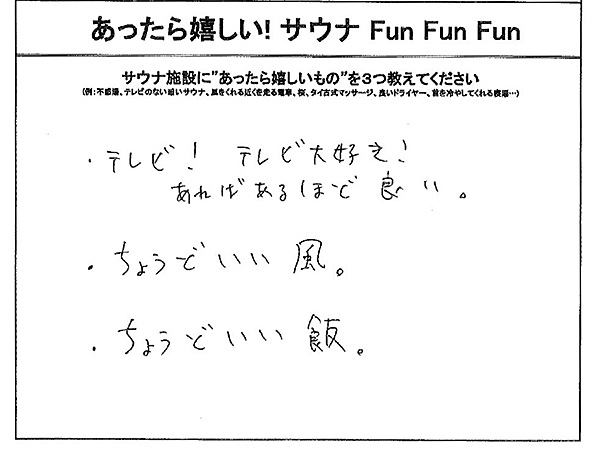 あったら嬉しい! サウナ Fun Fun Fun
サウナ施設に"あったら嬉しいもの"を3つ教えてください
(例:不感湯、テレビのない暗いサウナ、風をくれる近くを走る電車、桜、タイ古式マッサージ、良いドライヤー、首を冷やしてくれる寝湯…)
・テレビ! テレビ大好き!
あればあるほど良い。
・ちょうどいい風。
・ちょうどいい飯。